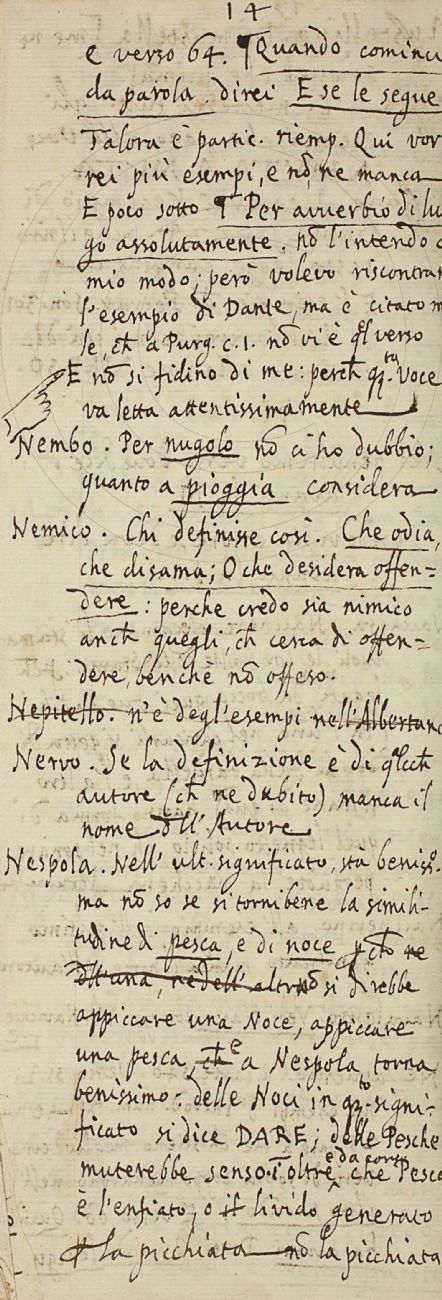 14
e verso 64. ¶ Quando cominci
da parola. direi E se le segue
Talora è partic. riemp. Qui vor
rei più esempi, e nõ ne manca
E poco sotto ¶ Per avverbio di lu
go assolutamente. nõ l'intendo
mio modo; però volevo riscontrar
l'esempio di Dante, ma è citato m
le, ch̃ a Purg. c. 1. nõ vi è q̃l verso
E nõ si fidino di me: perch̃ q̃ta voce
va letta attentissimamente
Nembo. Per nugolo nõ ci ho dubbio;
quanto a pioggia considera
Nemico. Chi definisse così. Che odia,
che disama; O che desidera offen=
dere: perche credo sia nimico
anch̃ quegli, ch̃ cerca di offen=
dere, benchè nõ offeso.
Nepitello. n'è degl'esempi nell'Albertano
Nervo. Se la definizione è di q̃lch̃
autore (ch̃ ne dubito) manca il
nome dll'Autore
Nespola. Nell' ult. significato, stà beniss.o
ma nõ so se si torni bene la simili-
tudine di pesca, e di noce
dll'una, nè dell'altra nõ si direbbe
appiccare una Noce, appiccare
una pesca, ch̃ e a Nespola torna
benissimo: delle Noci in q̃to signi-
ficato si dice DARE; delle Pesche
muterebbe senso. Ĩoltre che Pesca
è l'enfiato, o il livido generato
la picchiata nõ la picchiata